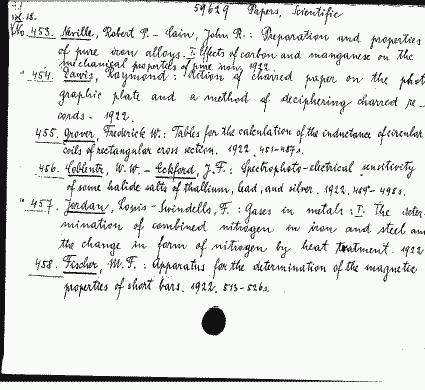 59629 Papers, Scientific
No. 453. Neville, Robert P. - Cain, John R.: Preparation and properties
of pure iron alloys. I. Effects of carbon and manganese on the
mechanical properties of pure iron. 1922.
" 454. Davis, Raymond: Action of charred paper on the phot
graphic plate and a method of deciphering charred re-
cords. - 1922.
455. Grover, Frederick W.: Tables for the calculation of the inductance of circular
coils of rectangular cross section. 1922. 451-487 s.
456. Coblentz, W. W. - Eckford, J. F.: Spectrophoto-electrical sensitivity
of some halide salts of thallium, lead, and silver. 1922. 489- 498 s.
" 457. Jordan, Louis - Swindells, F.: Gases in metals: I. The deter-
mination of combined nitrogen in iron and steel an
the change in form of nitrogen by heat treatment. 1922
458. Fischer, M. F.: Apparatus for the determination of the magnetic
properties of short bars. 1922. 513-526 s.